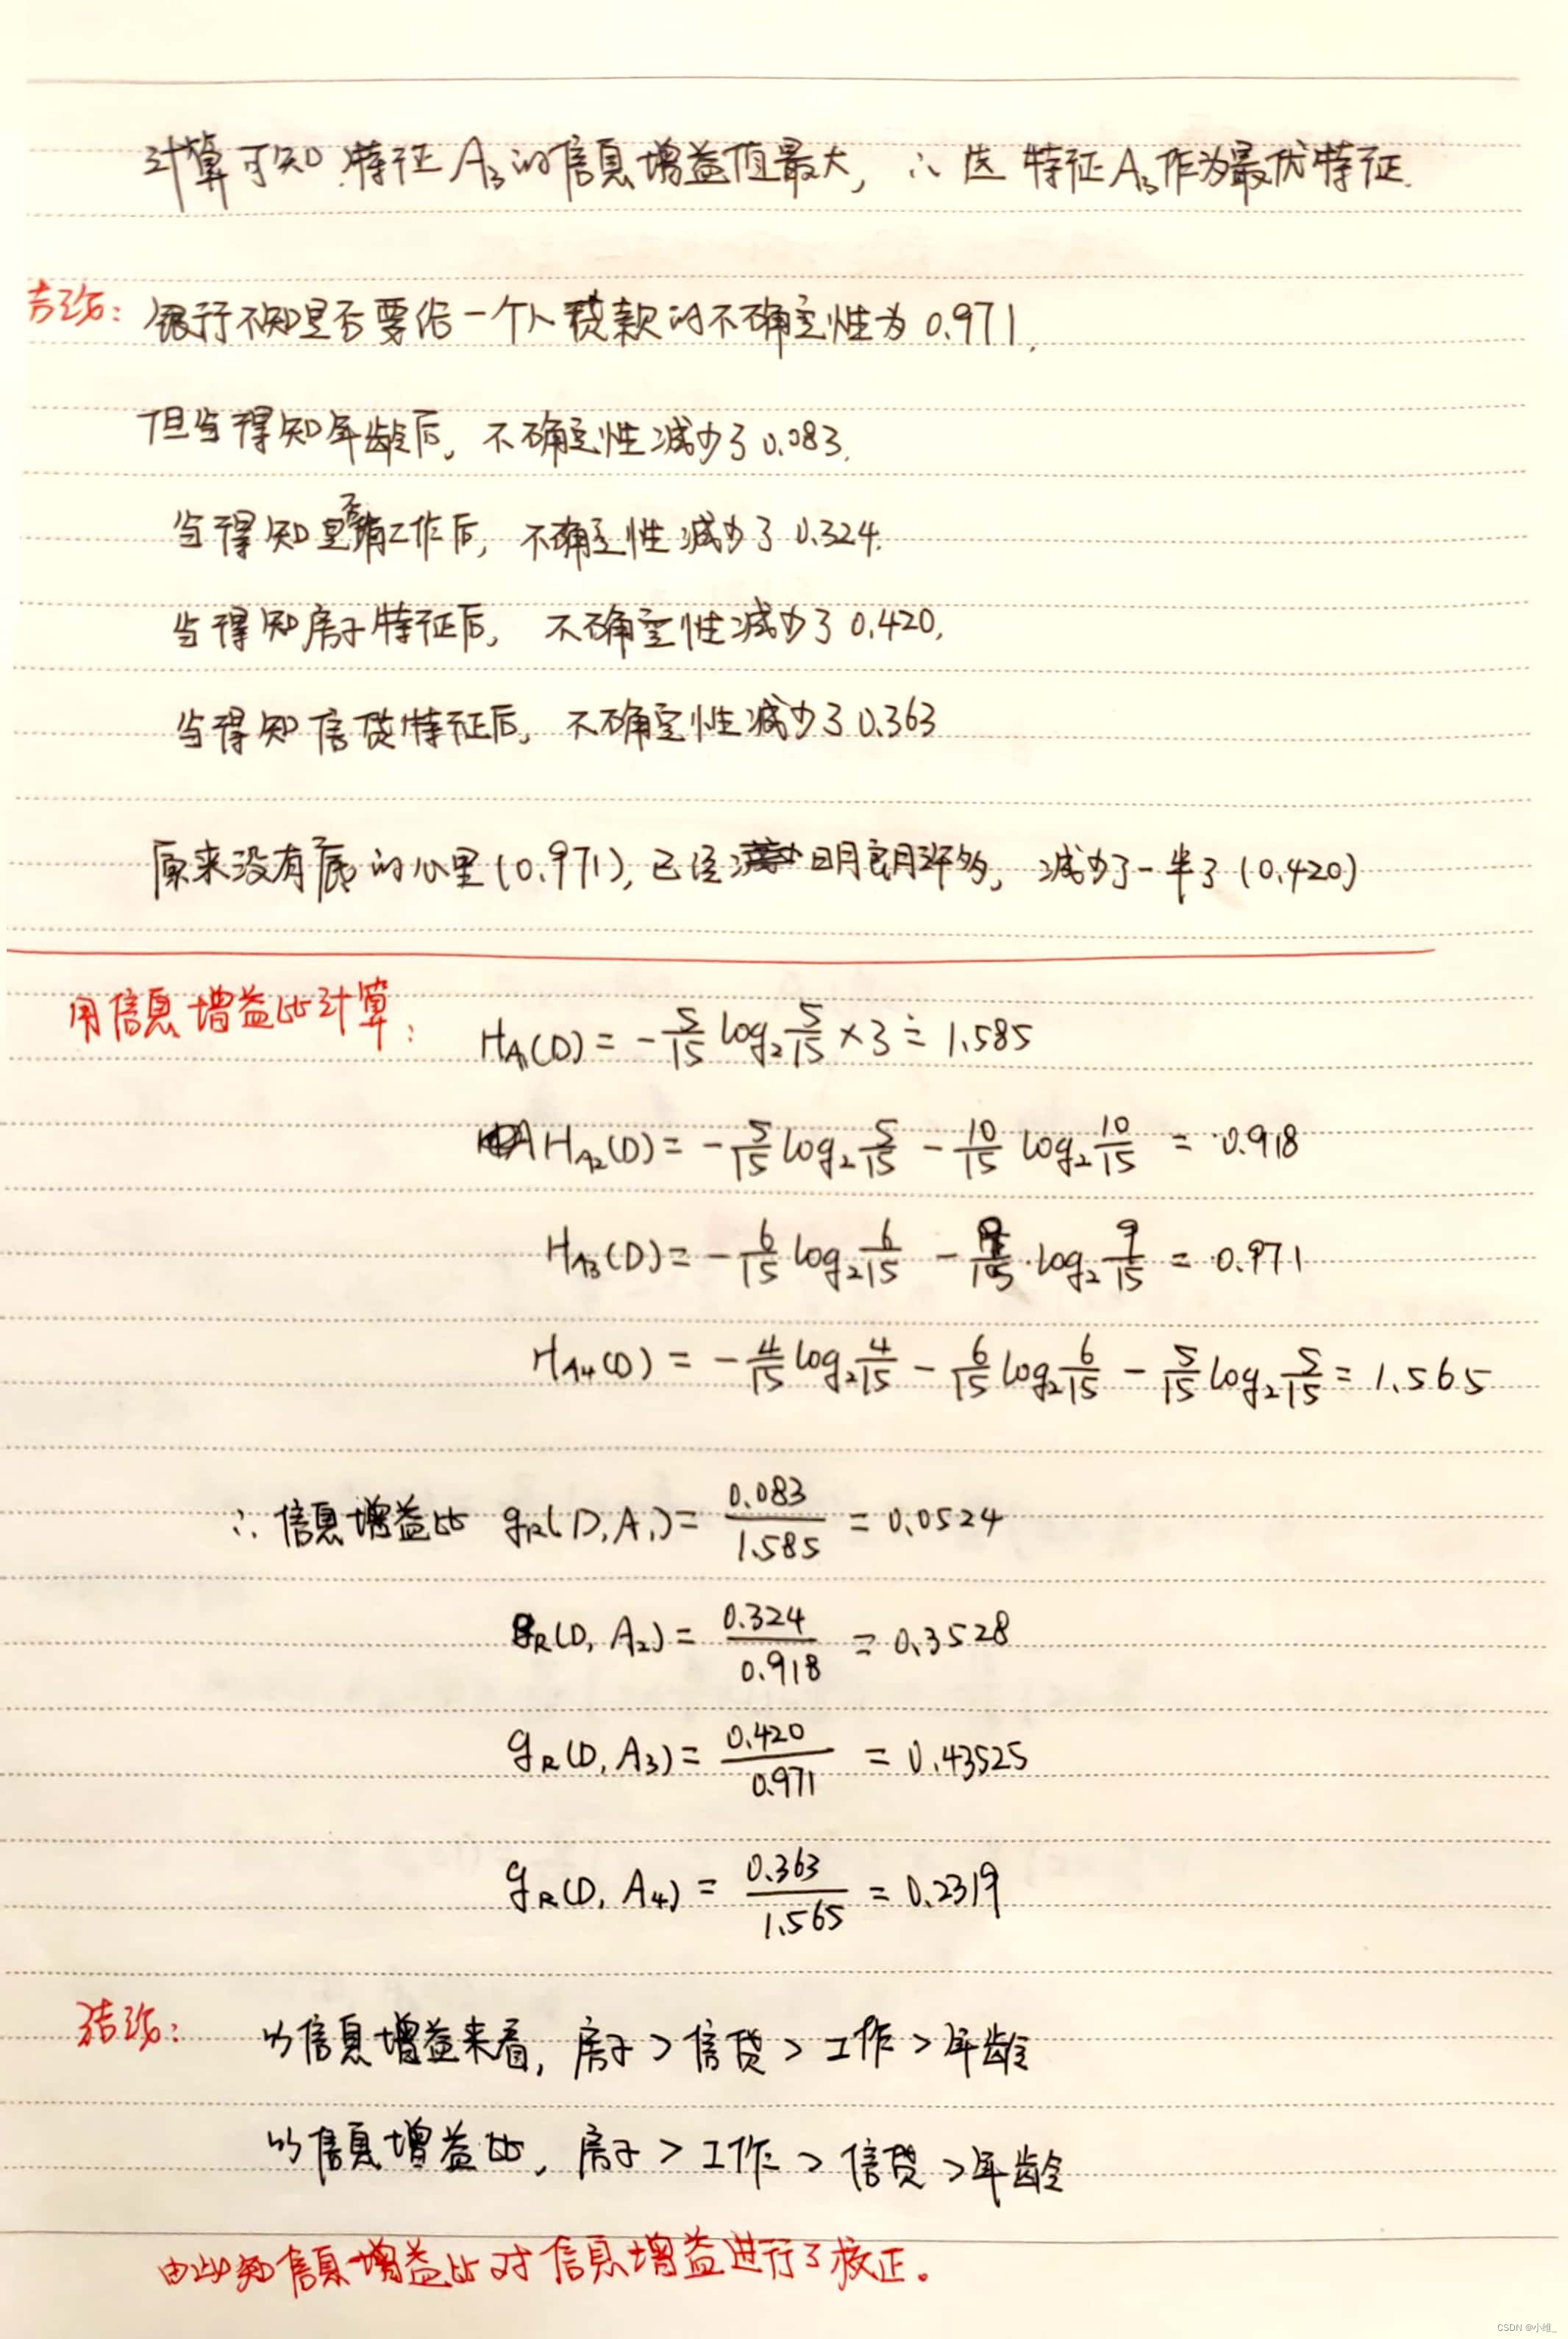 计算可知 特征 A₃的信息增益值最大, ∴ 选 特征A₃作为最优特征.
结论: 银行不知是否要给一个人贷款的不确定性为 0.971.
但当得知年龄后, 不确定性减少了 0.083.
当得知是否有工作后, 不确定性减少了 0.324.
当得知房子特征后, 不确定性减少了 0.420,
当得知信贷特征后, 不确定性减少了 0.363
原来没有底的心里(0.971), 已经明朗许多, 减少了一半了 (0.420)
用信息增益比计算: H_A₁(D) = -5/15 log₂ 5/15 × 3 ≐ 1.585
H_A₂(D) = -5/15 log₂ 5/15 - 10/15 log₂ 10/15 = 0.918
H_A₃(D) = -6/15 log₂ 6/15 - 9/15 log₂ 9/15 = 0.971
H_A₄(D) = -4/15 log₂ 4/15 - 6/15 log₂ 6/15 - 5/15 log₂ 5/15 = 1.565
∴ 信息增益比 g_R(D, A₁) = 0.083/1.585 = 0.0524
g_R(D, A₂) = 0.324/0.918 = 0.3528
g_R(D, A₃) = 0.420/0.971 = 0.43525
g_R(D, A₄) = 0.363/1.565 = 0.2319
结论: 以信息增益来看, 房子 > 信贷 > 工作 > 年龄
以信息增益比, 房子 > 工作 > 信贷 > 年龄
由此知信息增益比对信息增益进行了校正。
CSDN @小维_